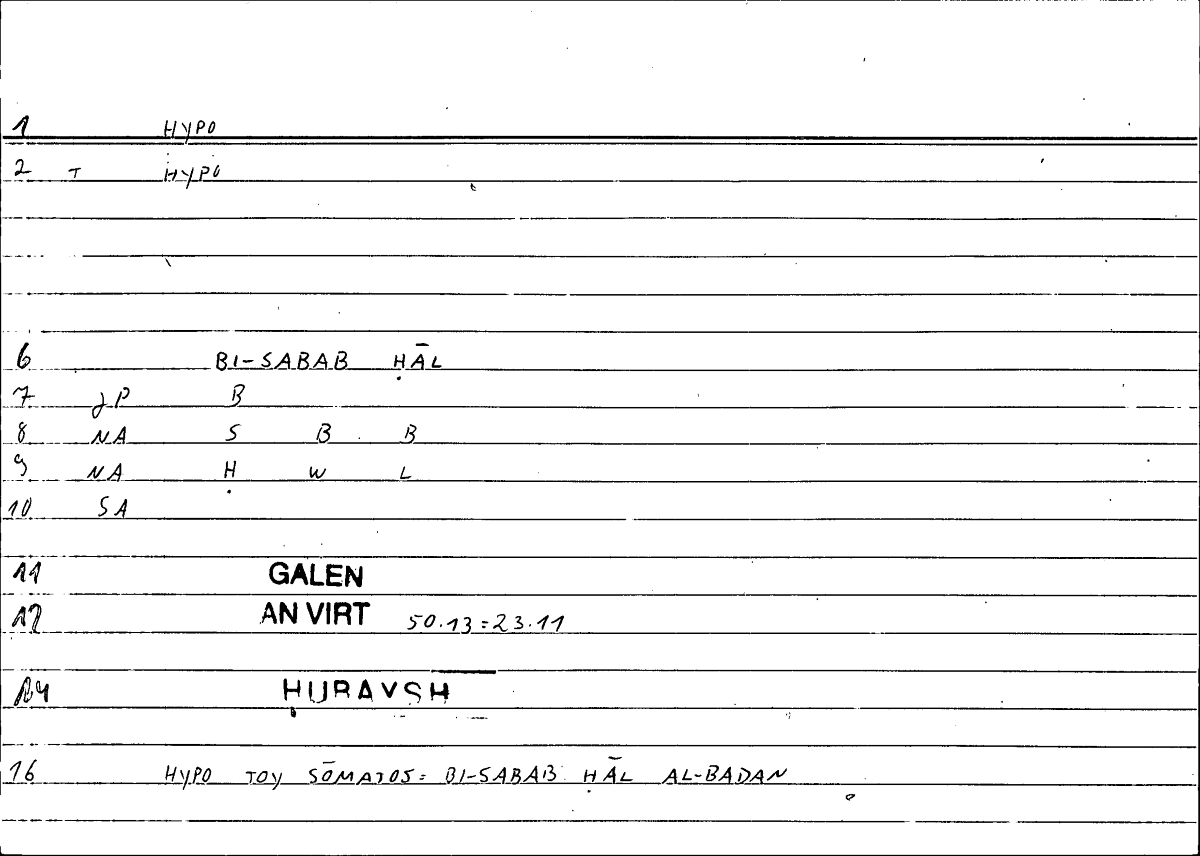 1 HYPO
2 T HYPO
6 BI-SABAB ḤĀL
7 JP B
8 NA S B B
9 NA Ḥ W L
10 SA
11 GALEN
12 AN VIRT 50.13=23.11
14 ḤURAYSH
16 HYPO TOY SŌMATOS= BI-SABAB ḤĀL AL-BADAN